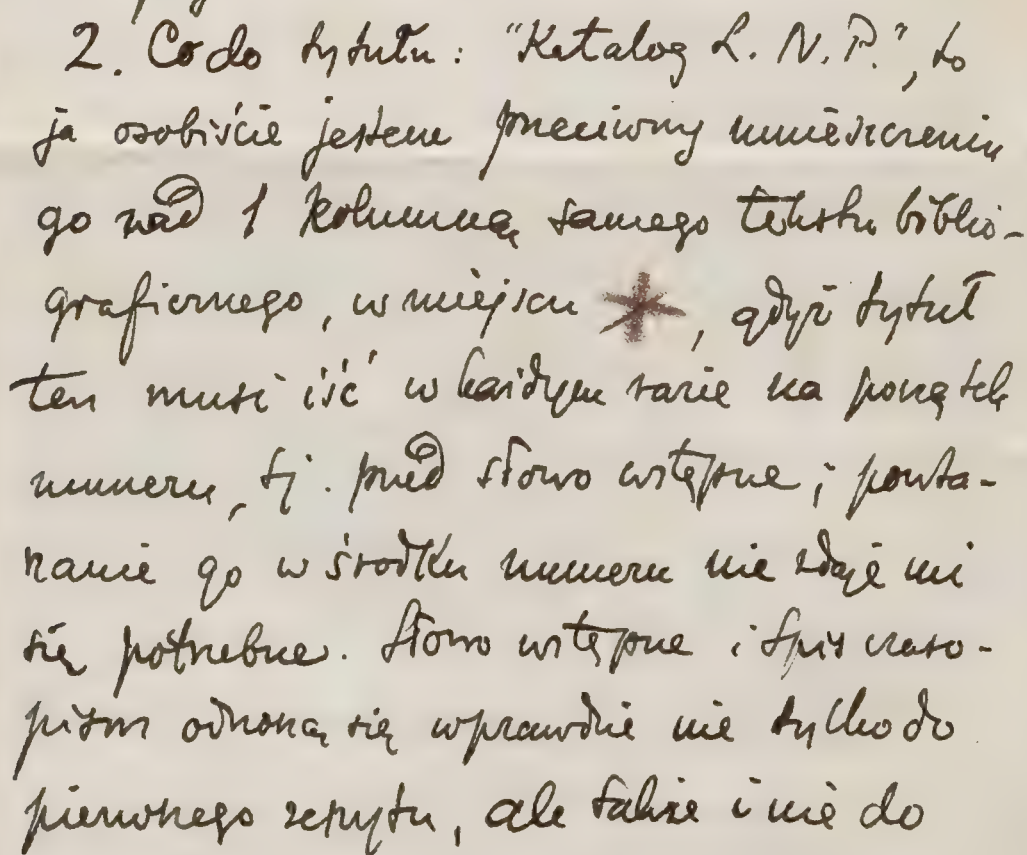 2. Co do tytułu: "Katalog L. N. P.", to
ja osobiście jestem przeciwny umieszczeniu
go nad 1 kolumną samego tekstu biblio-
graficznego, w miejscu *, gdyż tytuł
ten musi iść w każdym razie na początek
numeru, tj. przed słowo wstępne; powta-
rzanie go w środku numeru nie zdaje mi
się potrzebne. Słowo wstępne i spis czaso-
pism odnoszą się wprawdzie nie tylko do
pierwszego zeszytu, ale także i nie do